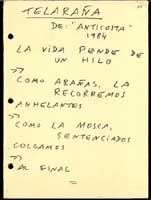 TELARAÑA
DE: "ANTICOSTA"
1984
LA VIDA PENDE DE
UN HILO
COMO ARAÑAS, LA
RECORREMOS
ANHELANTES
COMO LA MOSCA,
SENTENCIADOS
COLGAMOS
AL FINAL